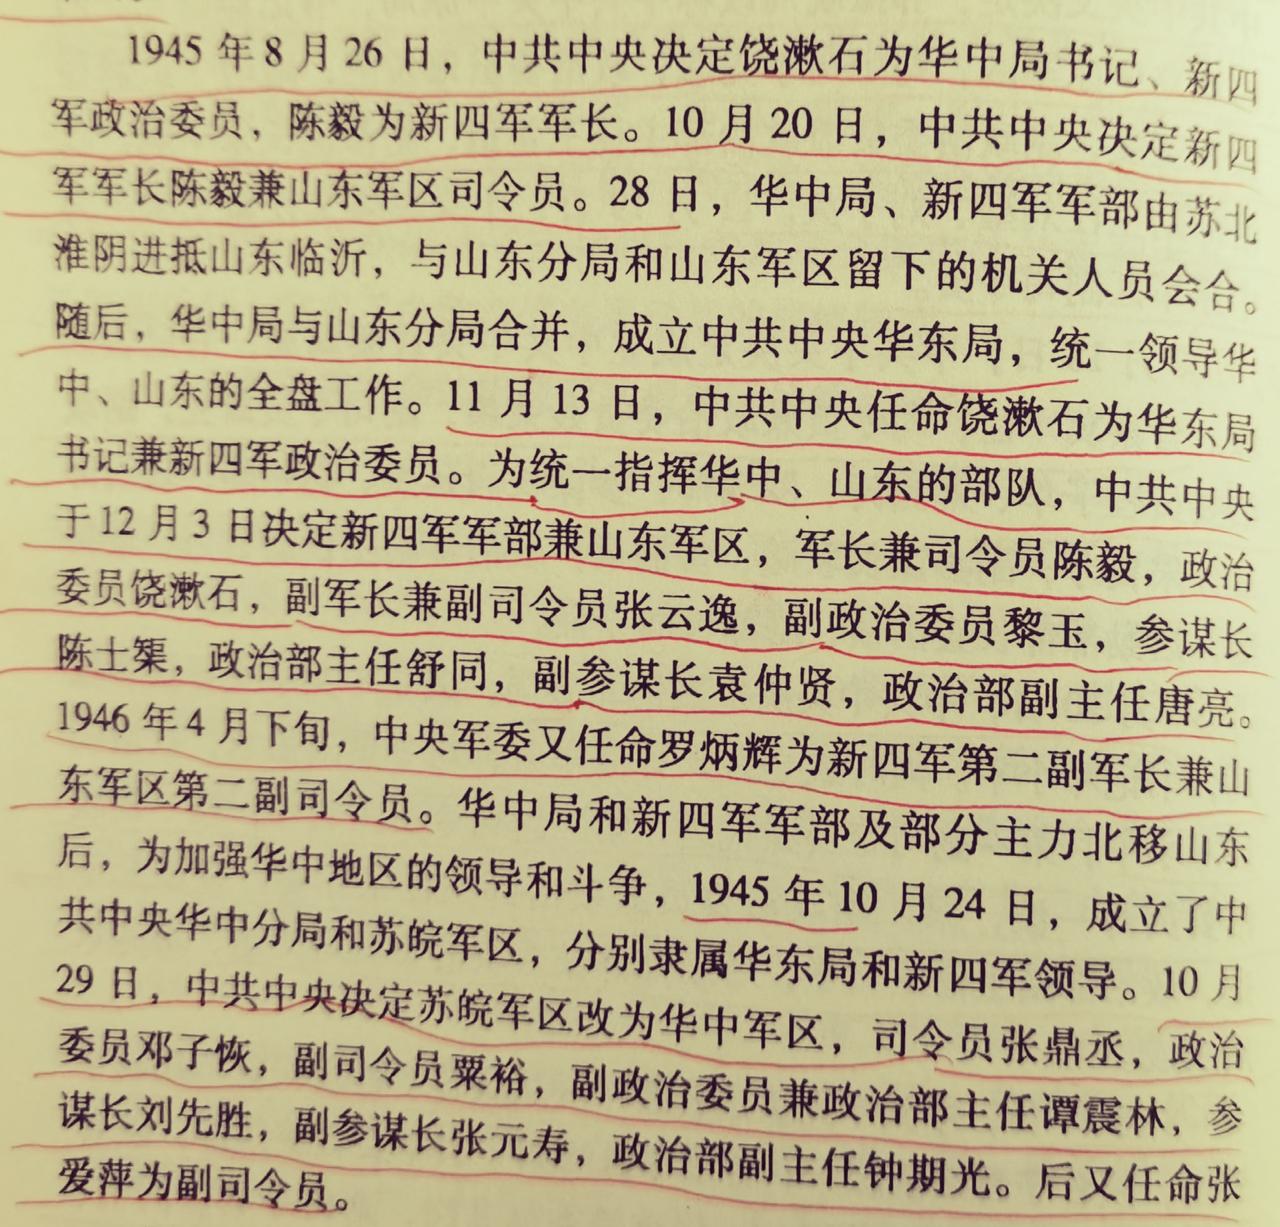 1945年8月26日，中共中央决定饶漱石为华中局书记、新四
军政治委员，陈毅为新四军军长。10月20日，中共中央决定新四
军军长陈毅兼山东军区司令员。28日，华中局、新四军军部由苏北
淮阴进抵山东临沂，与山东分局和山东军区留下的机关人员会合。
随后，华中局与山东分局合并，成立中共中央华东局，统一领导华
中、山东的全盘工作。11月13日，中共中央任命饶漱石为华东局
书记兼新四军政治委员。为统一指挥华中、山东的部队，中共中央
于12月3日决定新四军军部兼山东军区，军长兼司令员陈毅，政治
委员饶漱石，副军长兼副司令员张云逸，副政治委员黎玉，参谋长
陈士榘，政治部主任舒同，副参谋长袁仲贤，政治部副主任唐亮。
1946年4月下旬，中央军委又任命罗炳辉为新四军第二副军长兼山
东军区第二副司令员。华中局和新四军军部及部分主力北移山东
后，为加强华中地区的领导和斗争，1945年10月24日，成立了中
共中央华中分局和苏皖军区，分别隶属华东局和新四军领导。10月
29日，中共中央决定苏皖军区改为华中军区，司令员张鼎丞，政治
委员邓子恢，副司令员粟裕，副政治委员兼政治部主任谭震林，参
谋长刘先胜，副参谋长张元寿，政治部副主任钟期光。后又任命张
爱萍为副司令员。